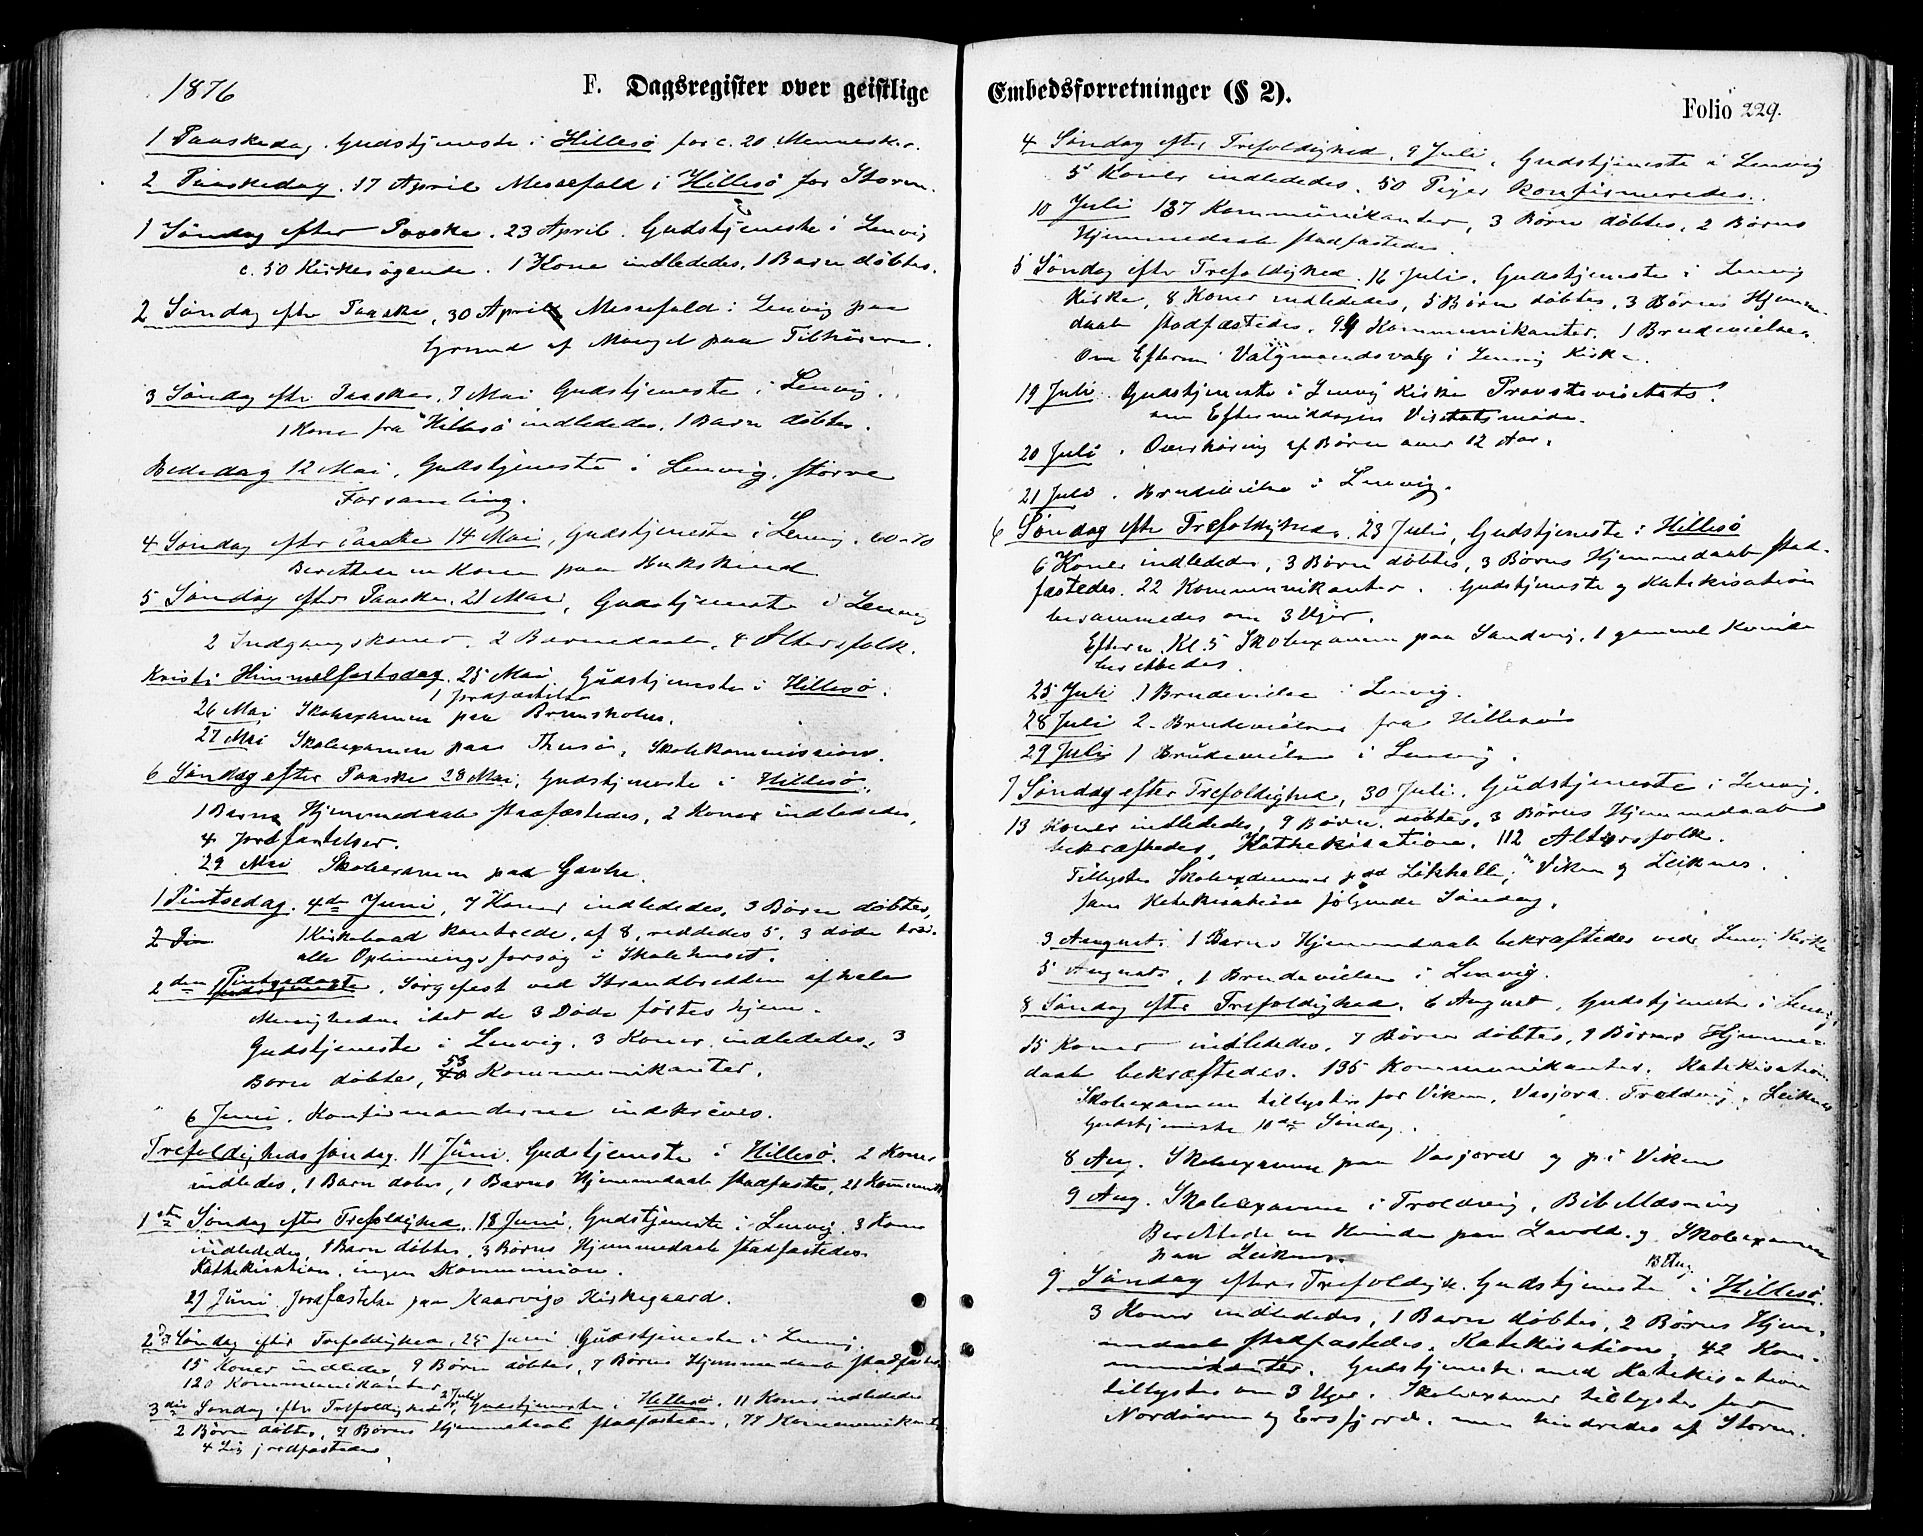 1876
F. Dagsregister over geistlige
1 Paaskedag. Gudstjeneste i Hillesö for c. 20 Mennesker.
2 Paaskedag. 17 April Messefald i Hillesö for Storm.
1 Søndag efter Paaske. 23 April. Gudstjeneste i Lenvig
c. 50 Kirkesøgende. 1 Kone indlededes, 1 Barn døbtes.
2 Søndag eftr Paaske, 30 April Messefald i Lenvig paa
Grund af Mangel paa Tilhørere.
3 Søndag eftr Paaske, 7 Mai Gudstjeneste i Lenvig.
1 Kone fra Hillesö indlededes, 1 Barn døbtes.
Bededag 12 Mai, Gudstjeneste i Lenvig, større
Forsamling.
4 Søndag eftr Paaske 14 Mai, Gudstjeneste i Lenvig. 60-70
en Kone paa
5 Søndag efter Paaske, 21 Mai, Gudstjeneste i Lenvig
2 Indgangskoner, 2 Barnedaab, 4 Altersfolk.
Kristi Himmelfartsdag. 25 Mai Gudstjeneste i Hillesö.
1 jordfæstelse
26 Mai Skoleexamen paa
27 Mai Skoleexamen paa , Skolekommission.
6 Søndag efter Paaske 28 Mai, Gudstjeneste i Hillesö,
1 Barns Hjemmedaab stadfæstedes, 2 Koner indlededes,
4 Jordfæstelser.
29 Mai Skoleexamen paa
1 Pintsedag. 4de Juni, 7 Koner indlededes, 3 Børn døbtes,
2 Pin 1 Kirkebaad kantrede, af 8, reddedes 5, 3 døde trods
alle Oplivningsforsøg i Skolehuset.
2den Pintsedag, Sørgefest ved Strandbredden af hele
Menigheden idet de 3 Døde førtes hjem.
Gudstjeneste i Lenvig, 3 Koner indlededes, 3
Børn døbtes, 53 Kommunikanter.
6 Juni. Konfirmanderne indskreves.
Trefoldighedssøndag. 11 Juni. Gudstjeneste i Hillesö. 2 Koner
indledes, 1 Barn døbes, 1 Barns Hjemmedaab stadfæstes, 21 Kommunik.
1ste Søndag efter Trefoldighed, 18 Juni, Gudstjeneste i Lenvig, 3 Koner
indlededes, 1 Barn døbtes, 3 Børns Hjemmedaab stadfæstedes
Kathekisation. ingen Kommunion.
Juni Jordfæstelse paa Kaarvigs Kirkegaard.
2den Søndag efter Trefoldighed, 25 Juni Gudstjeneste i Lenvig,
15 Koner indledes 9 Børn døbtes, 7 Børns Hjemmedaab stadfæstes
120 Kommunikanter
3die Søndag eftr Trefoldighed, 2 Juli, Gudstjeneste i Hillesö, 11 Koner indledes
2 Børn døbtes, 7 Børns Hjemmedaab stadfæstedes, 77 Kommunikanter
4 Lig jordfæstedes.
Embedsforretninger (§ 2).
Folio 229.
4 Søndag eftr Trefoldighed, 9 Juli. Gudstjeneste i Lenvig
5 Koner indlededes, 50 Piger konfirmeredes.
10 Juli 137 Kommunikanter, 3 Børn døbtes, 2 Børns
Hjemmedaab stadfæstedes
5 Søndag eftr Trefoldighed, 16 Juli, Gudstjeneste i Lenvig
Kirke, 8 Koner indlededes, 5 Børn døbtes, 3 Børns Hjemme-
daab stadfæstedes, 94 Kommunikanter. 1 Brudevielse,
Om Efterm. Valgmandsvalg i Lenvig Kirke.
19 Juli. Gudstjeneste i Lenvig Kirke Provstevisitats.
om Eftermiddagen Visitatsmøde.
20 Juli. Overhøring af Børn over 12 Aar.
21 Juli. Brudevielse i Lenvig.
6 Søndag eftr Trefoldighed, 23 Juli, Gudstjeneste i Hillesö
6 Koner indlededes, 3 Børn døbtes, 3 Børns Hjemmedaab stad-
fæstedes. 22 Kommunikanter. Gudstjeneste og Katekisation
berammedes om 3 Uger.
Efterm. Kl. 5 Skoleexamen paa Sandvig, 1 gammel Kvinde
berettedes.
25 Juli 1 Brudevielse i Lenvig.
28 Juli 2 Brudevielser fra Hillesö
29 Juli 1 Brudevielse i Lenvig.
7 Søndag efter Trefoldighed, 30 Juli. Gudstjeneste i Lenvig,
13 Koner indlededes, 9 Børn døbtes, 3 Børns Hjemmedaab
bekræftedes, Kathekisation, 112 Altersfolk.
Tillystes Skoleexamener paa , Viken og Leiknes.
samt Katekisation følgende Søndag.
3 August. 1 Barns Hjemmedaab bekræftedes ved Lenvig Kirke
5 August, 1 Brudevielse i Lenvig.
8 Søndag eftr Trefoldighed, 6 August, Gudstjeneste i Lenvig,
15 Koner indlededes, 7 Børn døbtes, 9 Børns Hjemme=
daab bekræftedes. 135 Kommunikanter. Katekisation
Skoleexamen tillystes for Viken, Vasjord. Troldvig, Leiknes
Gudstjeneste 10de Søndag.
8 Aug. Skoleexamen paa Vasjord og på Viken
9 Aug. Skoleexamen i Troldvig, Bibellæsning
Berettede en Kvinde paa Lavold. og Skoleexamen
paa Leiknes.
13 Aug.
9 Søndag efter Trefoldigh. Gudstjeneste i Hillesö.
3 Koner indlededes, 1 Barn døbtes, 2 Børns Hjem-
medaab stadfæstedes, Katekisation, 42 Kom-
munikanter. Gudstjeneste med Katekisation
tillystes om 3 Uger. Skoleexamen tillystes for
og Ersfjord. men hindredes af Storm.